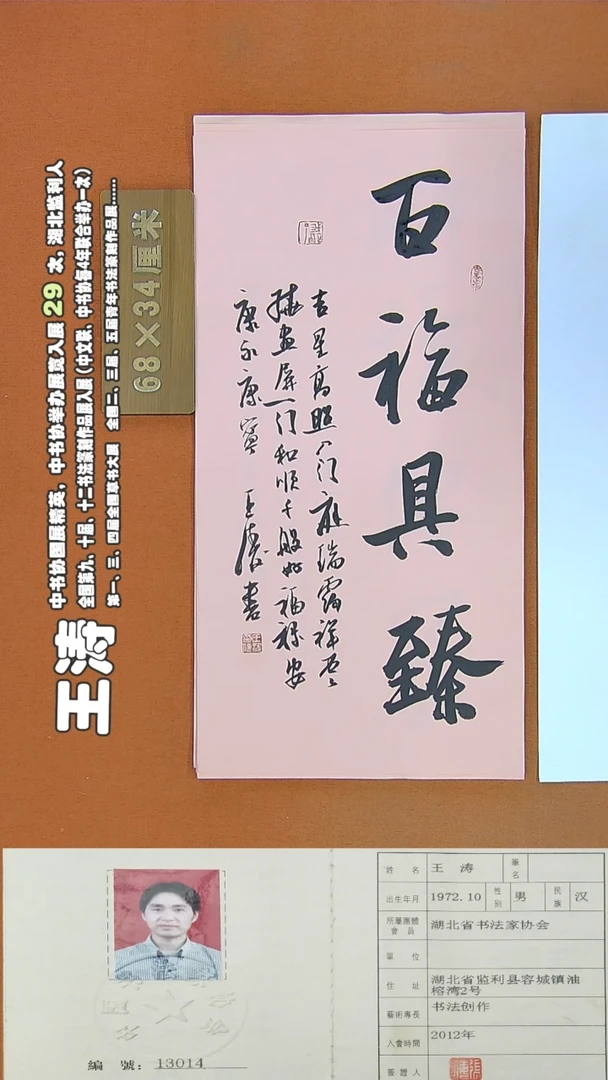 王涛
中书协国展精英，中书协举办展赛入展 29 次，湖北监利人
全国第九、十届、十二书法篆刻作品展入展（中文联、中书协每4年联合举办一次）
第一、三、四届全国 书法大展 全国二、三届、五届青年书法篆刻作品展......
68×34厘米
百福具臻
吉星高照 门庭瑞霭祥
画屏一门和顺千般好福禄安
康永康宁 王涛书
姓 名 王 涛 笔名
出生年月 1972.10 性别 男 民族 汉
所屬團體會員 湖北省书法家协会
單 位
住 址 湖北省监利县容城镇油榕湾2号
藝術專長 书法创作
入會時間 2012年
簽證人
編 號：13014